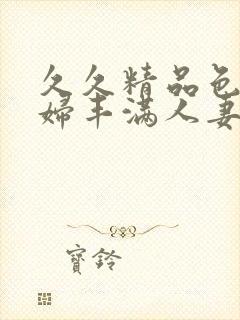 久久精品色
婦丰满人妻
寶鈴